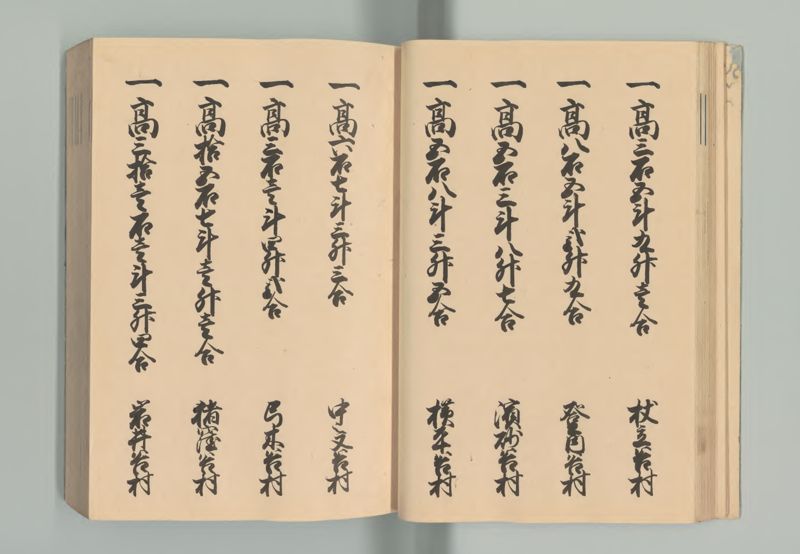 一高三石五斗九升壱合 杖立谷村
一高八石五斗弐升九合 登自谷村
一高五石三斗八升七合 濱砂谷村
一高五石八斗三升五合 横平谷村
一高六石七斗三升三合 中文谷村
一高三石壱斗四升弐合 弓木谷村
一高拾五石七斗壱升壱合 猪窪谷村
一高三拾壱石壱斗三升四合 若井谷村